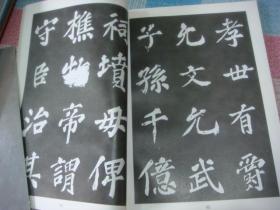 孝世有爵
允文允武
子孫千億
祠墳毋俾
樵帝謂
守臣治其